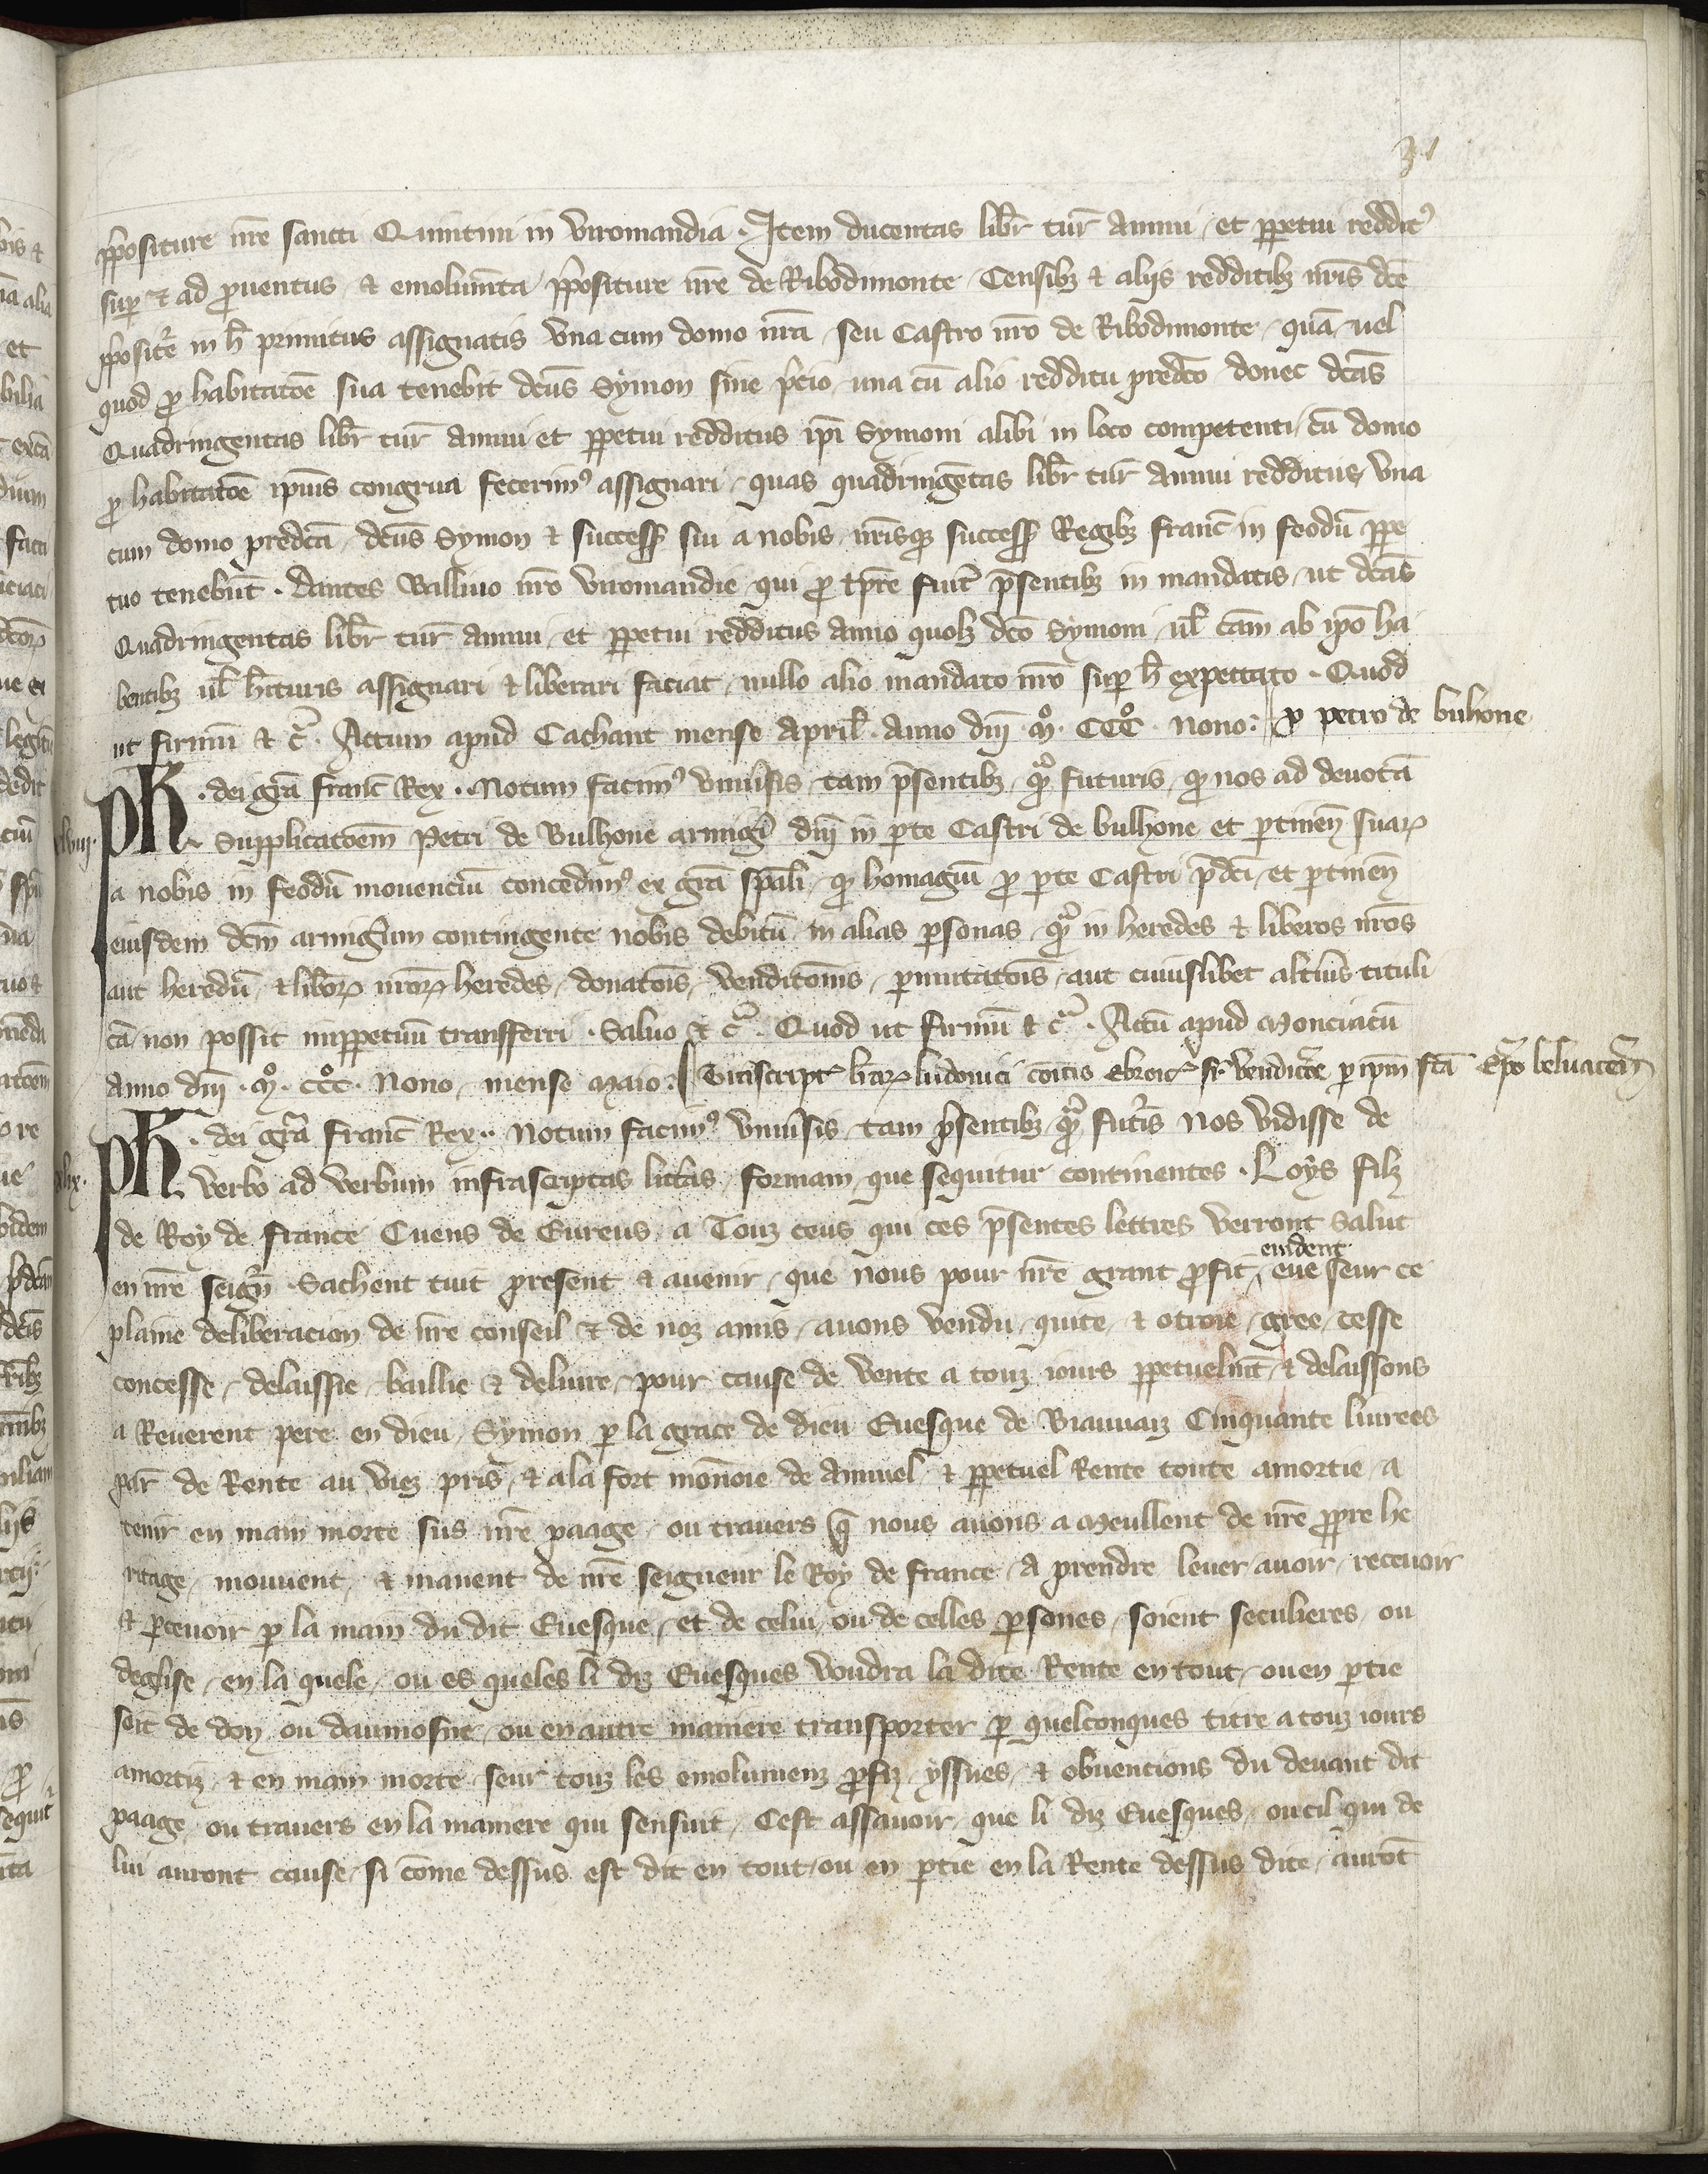 31
ppositure nre sancti Quintini in Viromandia . Item ducentas libr tur annui et ppetui reddit9
sup & ad prouentus & emolumta ppositure nre de Ribodimonte Censibz & aliis redditibz nris dce
pposite in h primitus assignatis vna cum domo nra seu Castro nro de Ribodimonte quam vel
quod pro habitatoe sua tenebit dcus Symon sine pcio vna cu alio redditu predco donec dcas
Quadringentas libr tur annui et ppetui redditus ipi Symoni alibi in loco competenti cu domo
pro habitatoe ipius congrua fecerim9 assignari quas quadringetas libr tur annui redditus vna
cum domo predca dcus Symon & success sui a nobis nrisqz success Regibz franc in feodu ppe
tuo tenebut . Dantes Balliuo nro viromandie qui pro tpre fuit psentibz in mandatis ut dcas
Quadringentas libr tur annui et ppetui redditus anno quolz dco Symoni ul cam ab ipo ha
bentibz ul hituris assignari & liberari faciat nullo alio mandato nro sup h expectato . Quod
ut firmu & c . Actum apud Cachant mense April . Anno dni . mo . CCCo . Nono : p petro de buhone
xlviii.
Ph . dei gra franc Rex . Notum facim9 vniuisis tam psentibz qm futuris q nos ad deuota
Supplicatoem Petri de Bulhone armigi dni in pte Castri de bulhone et ptinen suar
a nobis in feodu mouenciu concedim9 ex gra spali q homagiu pro pte Castri pdci et ptinen
eiusdem dcm armigum contingente nobis debitu in alias psonas qm in heredes & liberos nros
aut heredu & libor nror heredes donatois venditonis pmutatois aut cuiuslibet altius tituli
ca non possit imppetuu transferri . Saluo & c . Quod ut firmu & c . Actu apud Monciacu
Anno dni . mo . CCCo . Nono mense Maio : Tnscript lrar ludouici coitis Ebroic sr vendicoe p ipm fca Epo beluacen
xlix.
Ph . dei gra franc Rex . Notum facim9 vniuisis tam psentibz qm futis Nos vidisse de
verbo ad verbum infrascriptas litteras formam que sequitur continentes . Loys filz
de Roy de france Cuens de Eureus a Touz ceus qui ces psentes lettres verront Salut
en nre seign . Sachent tuit present & auenir que nous pour nre grant profit euident eue seur ce
plaine deliberacion de nre conseil & de noz amis auons vendu quite & otroie gree cesse
concesse delaissie baillie & deliure pour cause de vente a touz iours ppetuelmt & delaissons
a Reuerent pere en dieu Symon p la grace de dieu Euesque de Biauuaiz Cinquante liurees
par de Rente au viez pris & a la fort monoie de Annuel & ppetuel Rente toute amortie a
tenir en main morte sus nre paage ou trauers q nous auons a Meullent de nre ppre he
ritage mouuent & manent de nre seigneur le Roy de france A prendre leuer auoir receuoir
& pceuoir p la main du dit Euesque et de celui ou de celles psones soient seculieres ou
deglise en la quele ou es queles li diz Euesques voudra la dite Rente en tout ou en ptie
soit de don ou daumosne ou en autre maniere transporter p quelconques titre a touz iours
amortiz & en main morte seur touz les emolumenz profiz yssues & obuentions du deuant dit
paage ou trauers en la maniere qui sensuit Cest assauoir que li diz Euesques ou cil qui de
lui auront cause si come dessus est dit en tout ou en ptie en la Rente dessus dite aurot